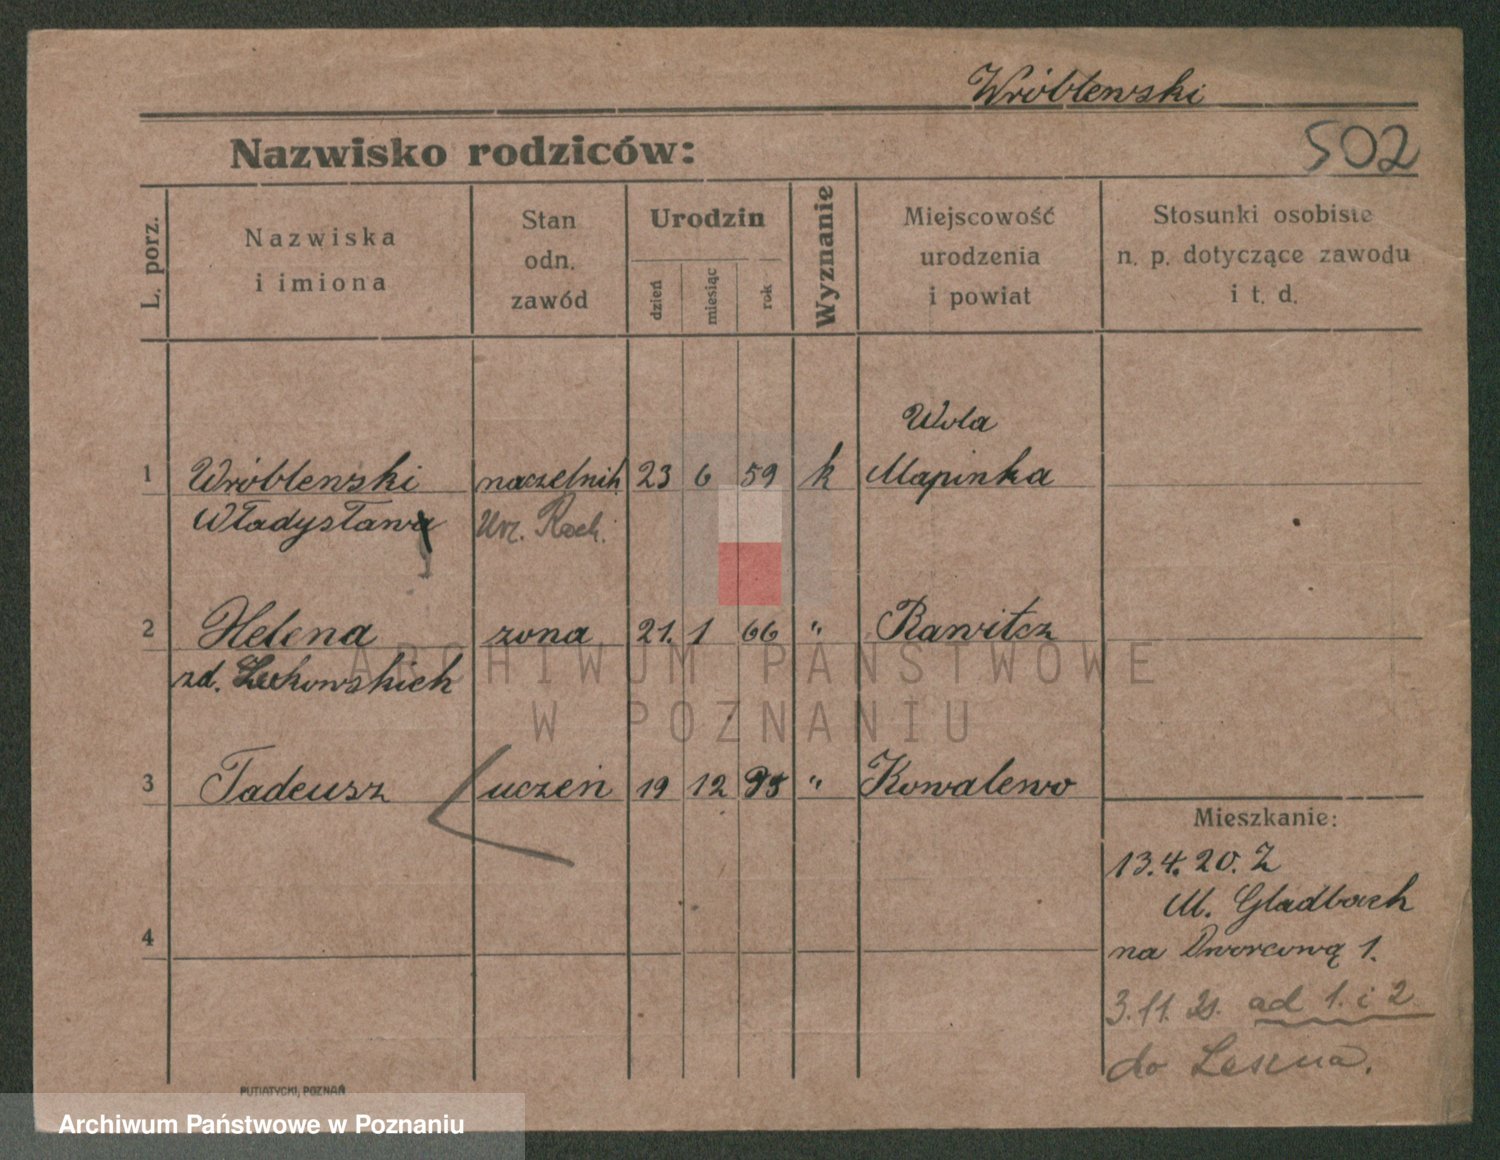 Wróblewski
Nazwisko rodziców:
502
L. porz.
Nazwiska
i imiona
Stan
odn.
zawód
Urodzin
dzień
miesiąc
rok
Wyznanie
Miejscowość
urodzenia
i powiat
Stosunki osobiste
n. p. dotyczące zawodu
i t. d.
Wola
1 Wróblewski naczelnik 23 6 59 k Mapinka
Władysława Urz. Rach.
2 Helena zona 21. 1 66 " Rawitcz
zd.
3 Tadeusz uczeń 19 12 " Kowalewo
Mieszkanie:
13.4.20. Z
M. Gladbach
4
na Dworcową 1.
3.11. 21. ad 1. i 2
do Leszna.
PUTIATYCKI, POZNAŃ
ARCHIWUM PAŃSTWOWE
W POZNANIU
Archiwum Państwowe w Poznaniu